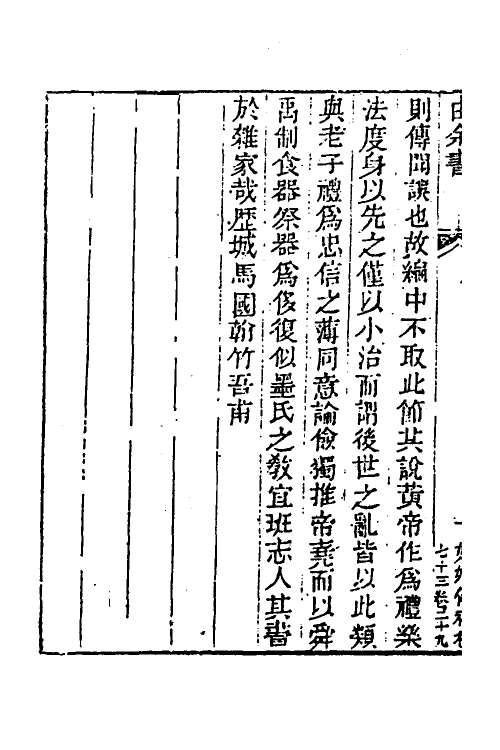 由余書
則傳聞誤也故編中不取此節其說黃帝作爲禮樂
法度身以先之僅以小治而謂後世之亂皆以此類
與老子禮爲忠信之薄同意論儉獨推帝堯而以舜
禹制食器祭器爲侈復似墨氏之教宜班志人其書
於雜家哉歷城馬國翰竹吾甫